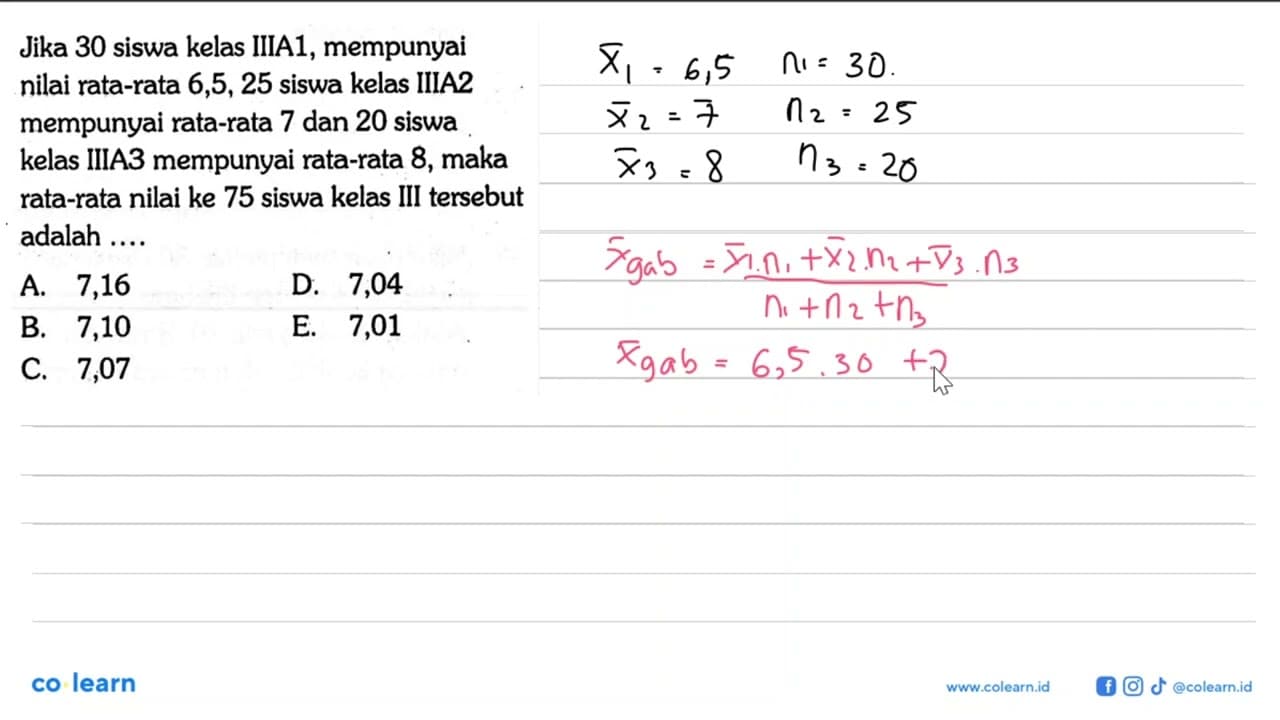 Jika 30 siswa kelas IIIA1, mempunyai
nilai rata-rata 6,5, 25 siswa kelas IIIA2
mempunyai rata-rata 7 dan 20 siswa
kelas IIIA3 mempunyai rata-rata 8, maka
rata-rata nilai ke 75 siswa kelas III tersebut
adalah ....
A. 7,16 D. 7,04
B. 7,10 E. 7,01
C. 7,07
x̄1 = 6,5 n1 = 30.
x̄2 = 7 n2 = 25
x̄3 = 8 n3 = 20
x̄gab = x̄1.n1 + x̄2.n2 + x̄3.n3
n1 + n2 + n3
x̄gab = 6,5 . 30 +
co learn
www.colearn.id @colearn.id